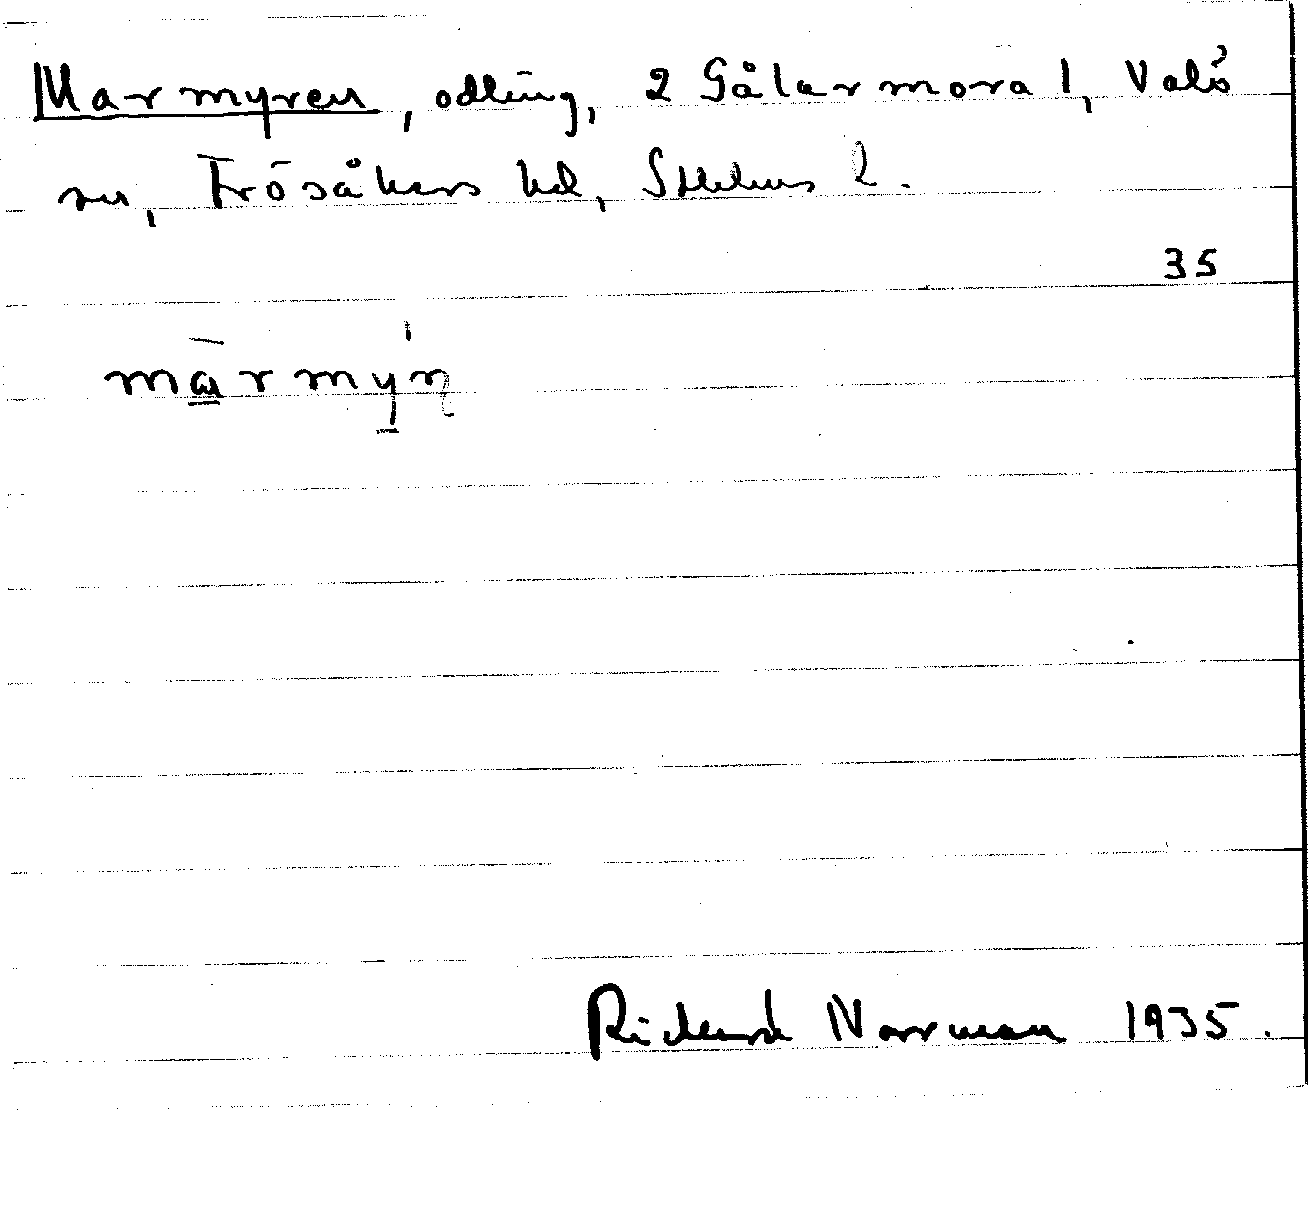 Marmyren, odling, 2 Gålarmora 1, Valö
sn, Frösåkers hd, Sthlms l.
35
màrmýn
Rickard Norrman 1935.